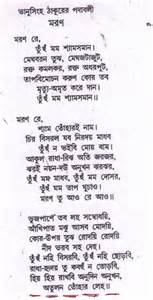 ভানুসিংহ ঠাকুরের পদাবলী
মরণ
মরণ রে,
তুঁহুঁ মম শ্যামসমান।
মেঘবরন তুঝ, মেঘজটাজুট,
রক্ত কমলকর, রক্ত অধরপুট,
তাপবিমোচন করুণ কোর তব
মৃত্যু-অমৃত করে দান।
মরণ রে,
শ্যাম তোঁহারই নাম।
চির বিসরল যব নিরদয় মাধব
তুঁহুঁ ন ভইবি মোয় বাম।
আকুল রাধা-রিঝ অতি জরজর,
ঝরই নয়ন-দউ অনুখন ঝরঝর,
তুঁহুঁ মম মাধব, তুঁহুঁ মম দোসর,
তুঁহুঁ মম তাপ ঘুচাও।
মরণ তু আও রে আও।
ভুজপাশে তব লহ সম্বোধয়ি,
আঁখিপাত মঝু আসব মোদয়ি,
কোর-উপর তুঝ রোদয়ি রোদয়ি
নীদ ভরব সব দেহ।
তুঁহুঁ নহি বিসরবি, তুঁহুঁ নহি ছোড়বি,
রাধা-হৃদয় তু কবহুঁ ন তোড়বি,
হিয় হিয় রাখবি অনুদিন অনুখন,
অতুলন তোঁহার লেহ।